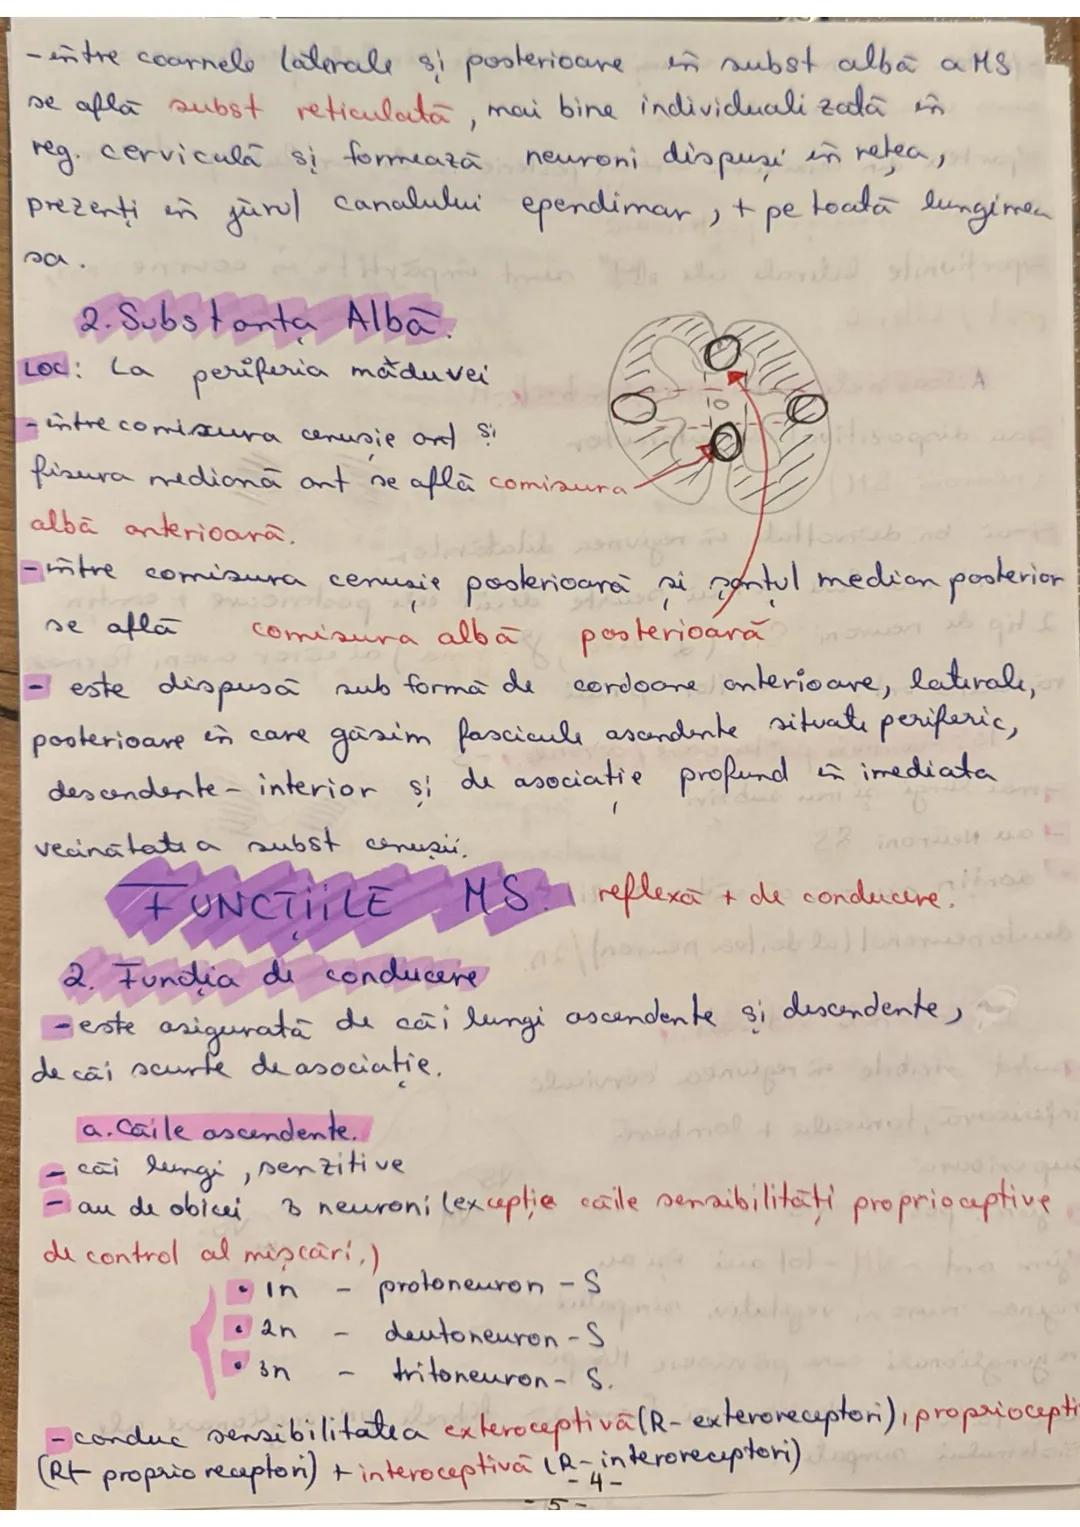 - între coarnele laterale și posterioare în subst albă a MS
se află subst reticulată, mai bine individualizată în
reg. cerviculă și formează neuroni dispuși în rețea,
prezenți în jurul canalului ependimar, + pe toată lungimea
sa.
2. Substanța Albă.
LOC: La periferia măduvei
- între comisura cenușie ant și
fisura mediană ant se află comisura
albă anterioară.
- între comisura cenușie posterioară și șanțul median posterior
se află comisura albă posterioară
- este dispusă sub formă de cordoane anterioare, laterale,
posterioare în care găsim fascicule ascendente situate periferic,
descendente - interior și de asociație profund în imediata
vecinătatea subst cenușii.
FUNCȚIILE MS. reflexă + de conducere.
2. Funcția de conducere
- este asigurată de căi lungi ascendente și descendente,
de căi scurte de asociație.
a. Căile ascendente.
- căi lungi, senzitive
- au de obicei 3 neuroni (excepție căile sensibilității proprioceptive
de control al mișcări.)
• 1n - protoneuron - S
• 2n - deutoneuron - S
• 3n - tritoneuron - S.
- conduc sensibilitatea exteroceptivă (R- exteroreceptori), propriocepti
(R+ proprio receptori) + interoceptivă (R- interoreceptori)
- 4 -
- 5 -